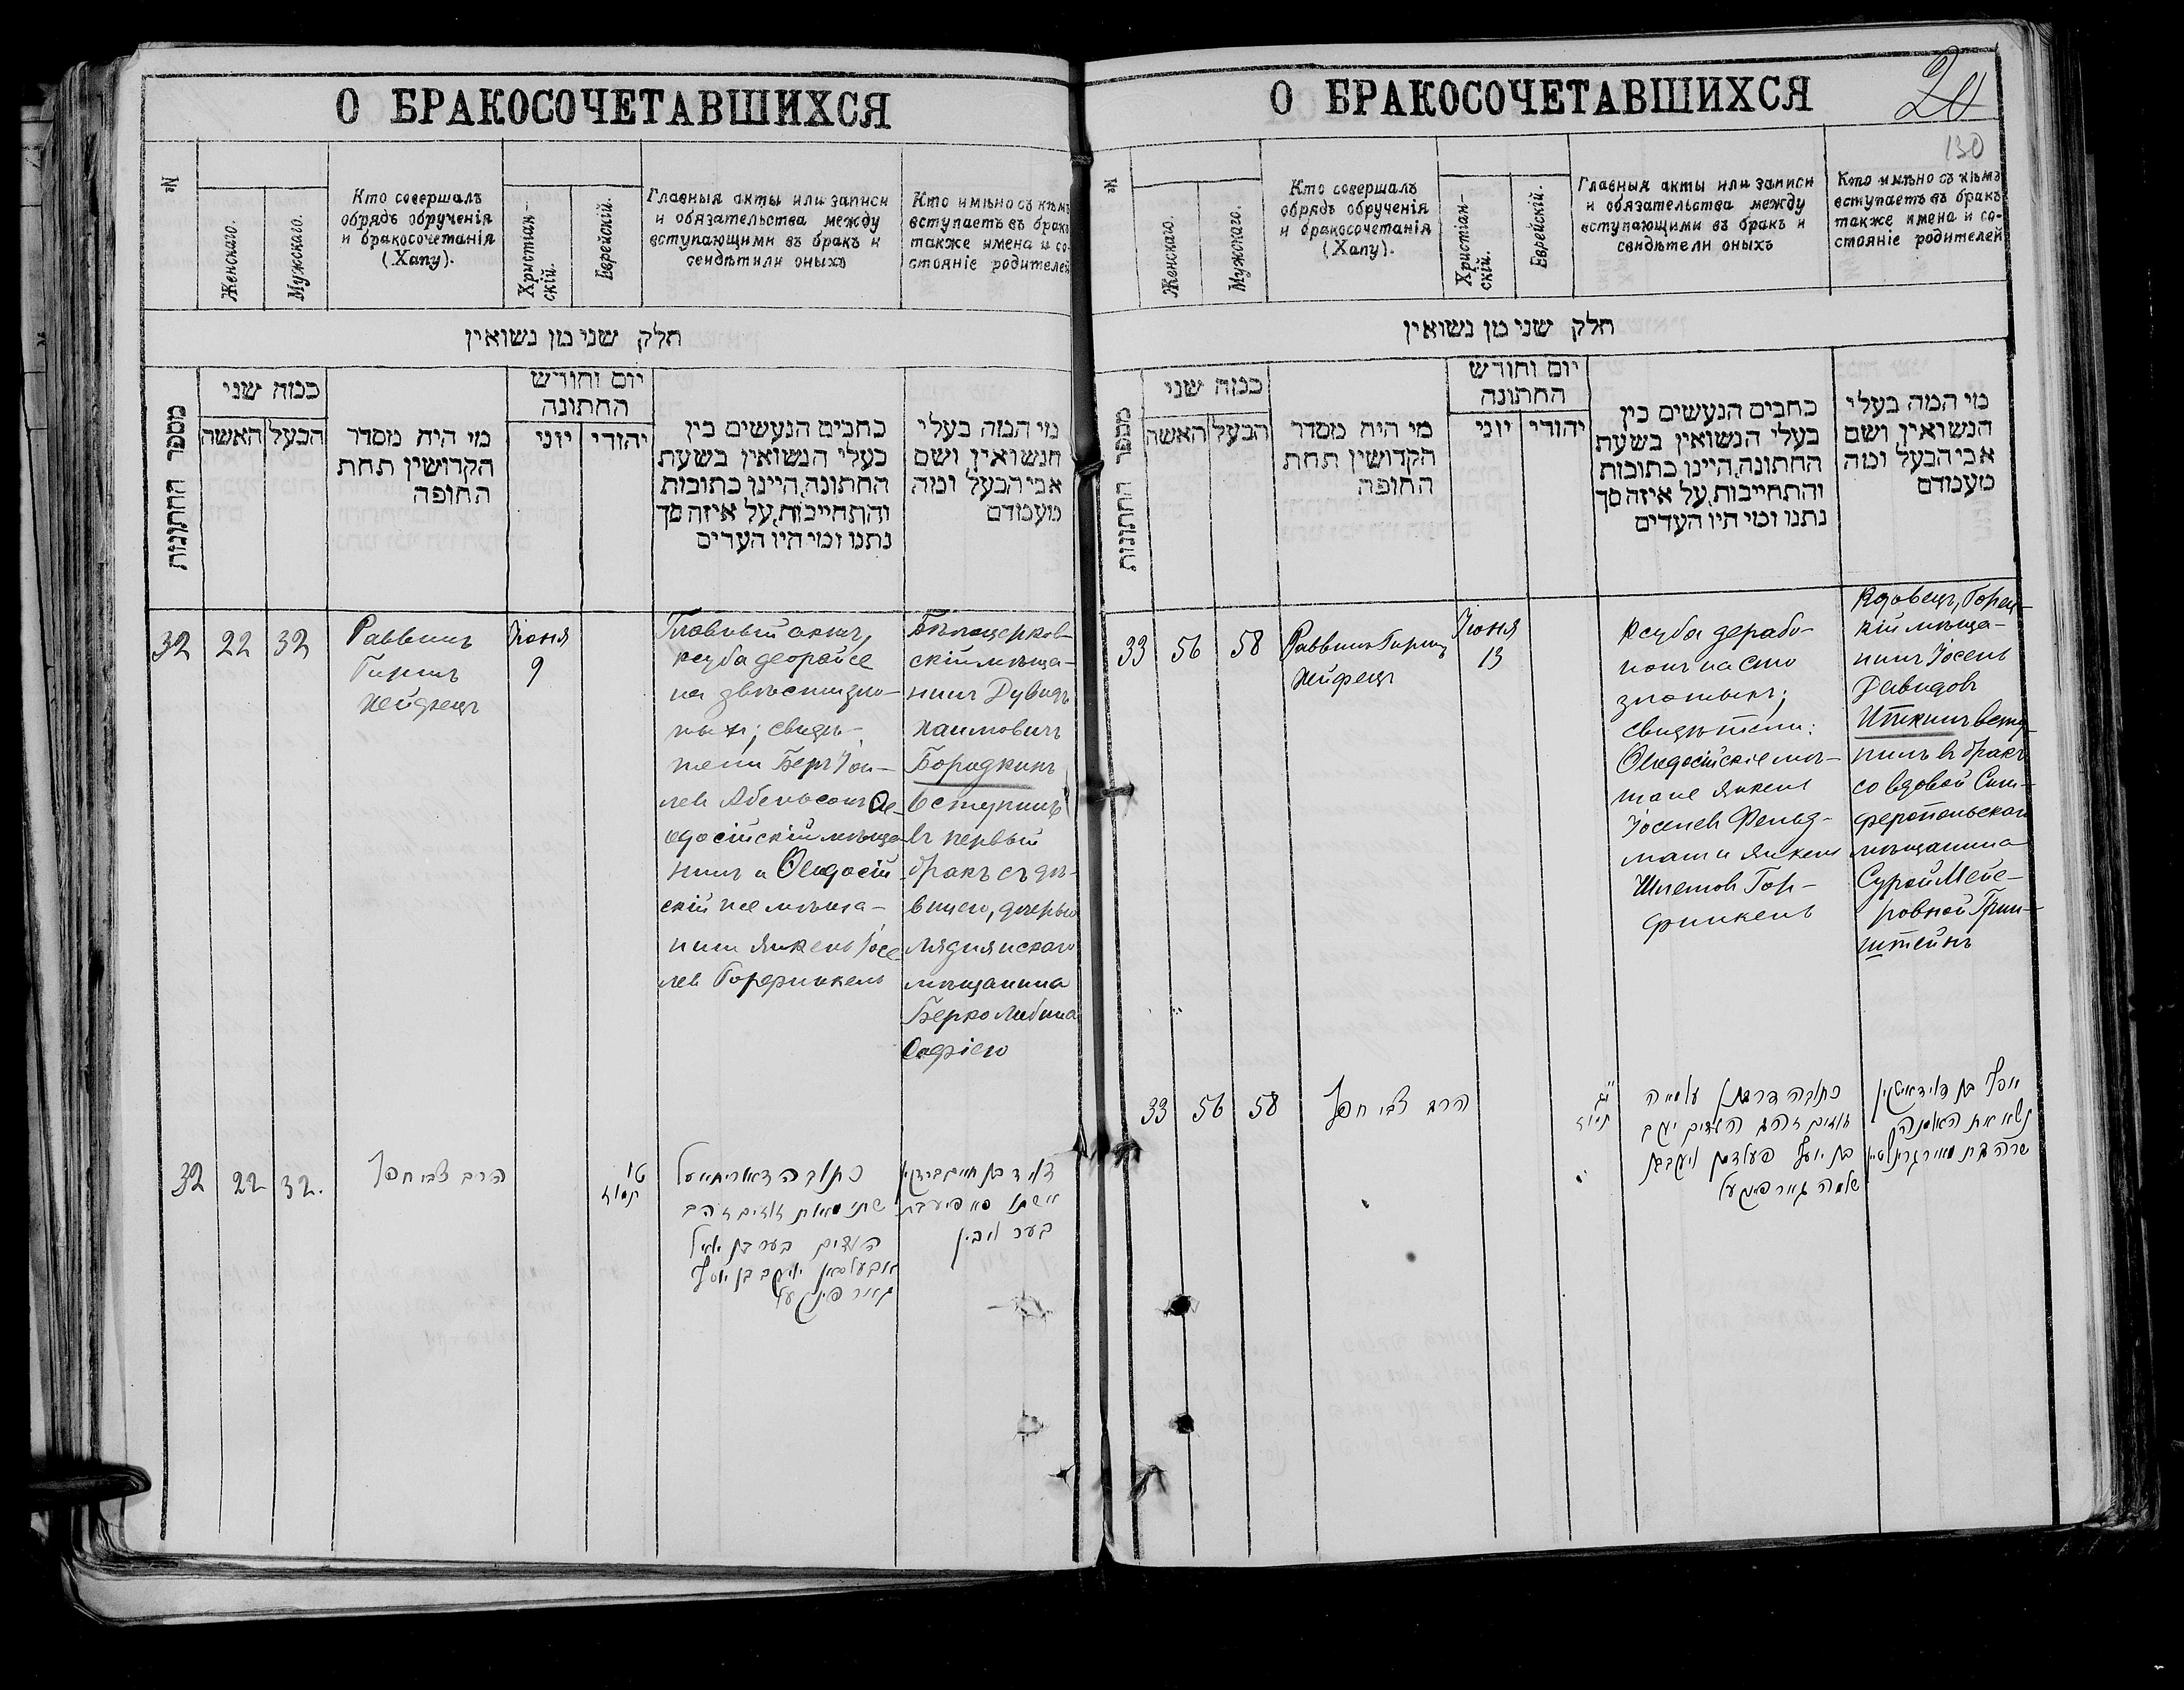 О БРАКОСОЧЕТАВШИХСЯ
№
Женскаго.
Мужскаго.
Кто совершалъ
обрядъ обрученія
и бракосочетанія
(Хапу).
Христіан-
скій.
Еврейскій.
Главныя акты или записи
и обязательства между
вступающими въ бракъ и
свидѣтили оныхъ
Кто имѣно съ кѣмъ
вступаетъ въ бракъ
также имена и со-
стояніе родителей
חלק שני מן נשואין
מספר החתונות
כמה שני
האשה
הבעל
מי היה מסדר
הקדושין תחת
החופה
יום וחודש
החתונה
יוני
יהודי
כתבים הנעשים בין
בעלי הנשואין בשעת
החתונה, היינו כתובות
והתחייבות, על איזה סך
נתנו ומי היו העדים
מי המה בעלי
הנשואין, ושם
אבי הבעל ומה
מעמדם
32
22
32
Раввинъ
Гиршъ
Хейфецъ
Іюня
9
Главный актъ,
ксуба деорайсе
на двѣсти зло-
тыхъ; свидѣ-
тели Беръ Іои-
левъ Абельсонъ Ѳе-
одосійскій мѣща-
нинъ и Ѳеодосій-
скій же мѣща-
нинъ Янкель Іосе-
левъ Горфинкель
Бѣлоцерков-
скій мѣща-
нинъ Дувидъ
Хаимовичъ
Бородкинъ
вступилъ
въ первый
бракъ съ дѣ-
вицею, дочерью
Лядиянскаго
мѣщанина
Берко Либина
Софіею
32
22
32.
הרב צבי חפץ
טו
תמוז
כתובה דאורייתא על
שתי מאות זוזים זהב
העדים בער בן יואל
אבעלסאן יעקב בן יוסף
גאר פינקעל
דוד בן חיים ברודקין
בער ליבין
О БРАКОСОЧЕТАВШИХСЯ
20
130
№
Женскаго.
Мужскаго.
Кто совершалъ
обрядъ обрученія
и бракосочетанія
(Хапу).
Христіан-
скій.
Еврейскій.
Главныя акты или записи
и обязательства между
вступающими въ бракъ и
свидѣтели оныхъ
Кто имѣно съ кѣмъ
вступаетъ въ бракъ
также имена и со-
стояніе родителей
חלק שני מן נשואין
מספר החתונות
כמה שני
האשה
הבעל
מי היה מסדר
הקדושין תחת
החופה
יום וחודש
החתונה
יוני
יהודי
כתבים הנעשים בין
בעלי הנשואין בשעת
החתונה, היינו כתובות
והתחייבות, על איזה סך
נתנו ומי היו העדים
מי המה בעלי
הנשואין, ושם
אבי הבעל ומה
מעמדם
33
56
58
Раввинъ Гиршъ
Хейфецъ
Іюня
13
Ксуба дерабо-
нонъ на сто
злотыхъ;
свидѣтели:
Ѳеодосійскіе мѣ-
щане Янкель
Іоселевъ Фельд-
манъ и Янкель
Шлемовъ Гор-
финкель
Вдовецъ, Горец-
кій мѣща-
нинъ Іосель
Давидовъ
Иткинъ всту-
пилъ въ бракъ
со вдовой Сим-
феропольскаго
мѣщанина
Сурой Мейе-
ровной Грин-
штейнъ
33
56
58
הרב צבי חפץ
תמוז
כתובה דרבנן על מאה
זוזים זהב העדים יעקב
בן יוסף פעלדמן ויעקב בן
שלמה גאר פינקעל
יוסף בן דוד איטקין
נשא את האלמנה
שרה בת מאיר גרינשטיין